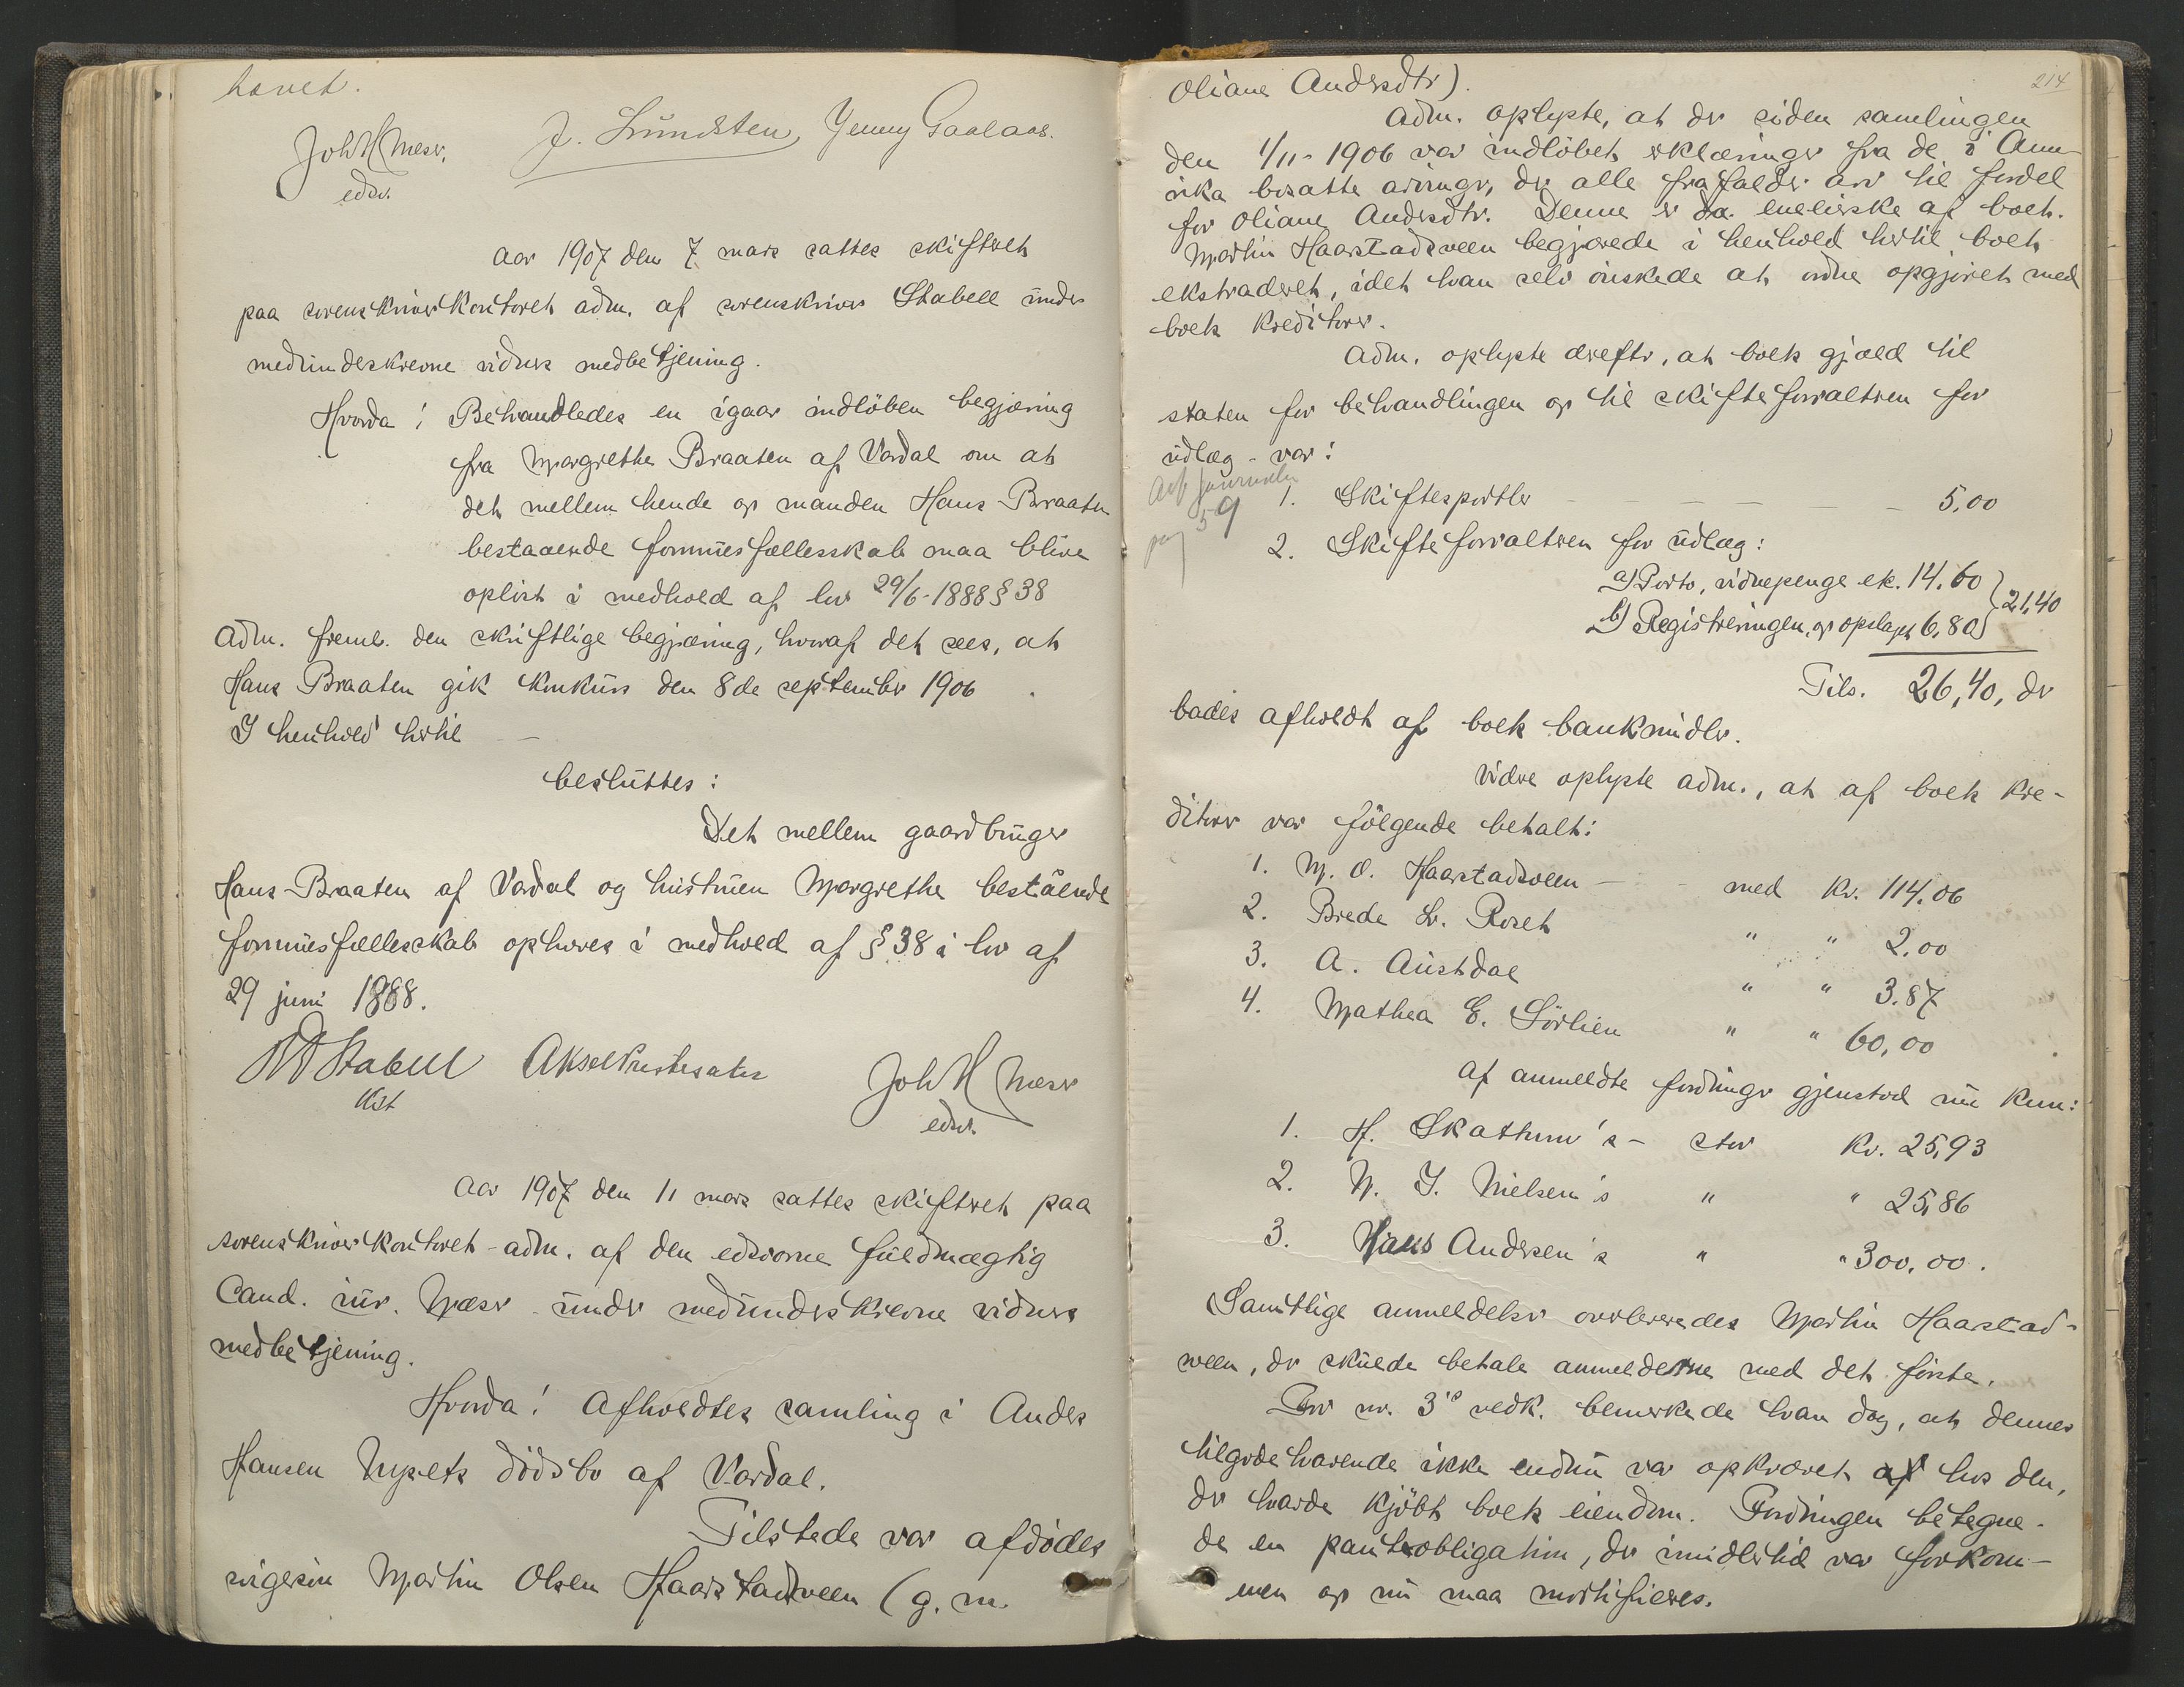 hævet.
Joh H Mæsr, J. Lundsten, Jenny Gaalaas.
edsv.
Aar 1907 den 7 mars sattes skifteret
paa sorenskriverkontoret adm. af sorenskriver Stabell under
medunderskrevne vidners medbetjening.
Hvorda: Behandledes en igaar indløben begjæring
fra Margrethe Braaten af Vardal om at
det mellem hende og manden Hans Braaten
bestaaende formuesfællesskab maa blive
opløst i medhold af lov 29/6-1888 § 38
Adm. freml. den skriftlige begjæring, hvoraf det sees, at
Hans Braaten gik konkurs den 8de september 1906.
I henhold hertil —
besluttes:
Det mellem gaardbruger
Hans Braaten af Vardal og hustruen Margrethe bestående
formuesfællesskab ophæves i medhold af § 38 i lov af
29 juni 1888.
Stabell Aksel Prestesæter Joh H Mæsr
Kst edsv.
Aar 1907 den 11 mars sattes skifteret paa
sorenskriverkontoret - adm. af den edsvorne fuldmægtig
Cand. jur. Mæsr - under medunderskrevne vidners
medbetjening.
Hvorda! Afholdtes samling i Anders
Hansen Myhrets dødsbo af Vardal.
Tilstede var afdødes
svigersøn Martin Olsen Haarstadsveen (g. m.
214
Oliane Andersdtr).
Adm. oplyste, at der siden samlingen
den 1/11-1906 var indløbet erklæringer fra de i Ame-
rika bosatte arvinger, der alle frafalder arv til fordel
for Oliane Andersdtr. Denne er da enearving af boet.
Martin Haarstadsveen begjærede i henhold hertil boet
ekstraderet, idet han selv ønskede at ordne opgjøret med
boets kreditorer.
Adm. oplyste derefter, at boets gjæld til
staten for behandlingen og til skifteforvalteren for
udlæg - var:
Arb journalen
pag 59
1. Skiftesportler — — — — 5,00
2. Skifteforvalteren for udlæg:
a) Porto, vidnepenge etc. 14.60 } 21,40
b) Registreringen, og opslaget 6,80
Tils. 26,40, der
bades afholdt af boets bankmidler.
Videre oplyste adm., at af boets kre-
ditorer var følgende betalt:
1. M. O. Haarstadsveen — - med Kr. 114.06
2. Brede L. Roset " " 2.00
3. A. Austdal " " 3.87
4. Mathea E. Sørlien " " 60,00
Af anmeldte fordringer gjenstod nu kun:
1. H. Skattum's - stor Kr. 25,93
2. N. J. Nielsen's " " 25,86
3. Hans Andersen's " " 300,00.
Samtlige anmeldelser overleveredes Martin Haarstad-
sveen, der skulde betale anmelderne med det første.
For nr. 3's vedk. bemerkede han dog, at dennes
tilgodehavende ikke endnu var opkrævet af hos den,
der havde kjøbt boets eiendom. Fordringen betegne-
de en panteobligation, der imidlertid var forkom-
men og nu maa mortifieres.